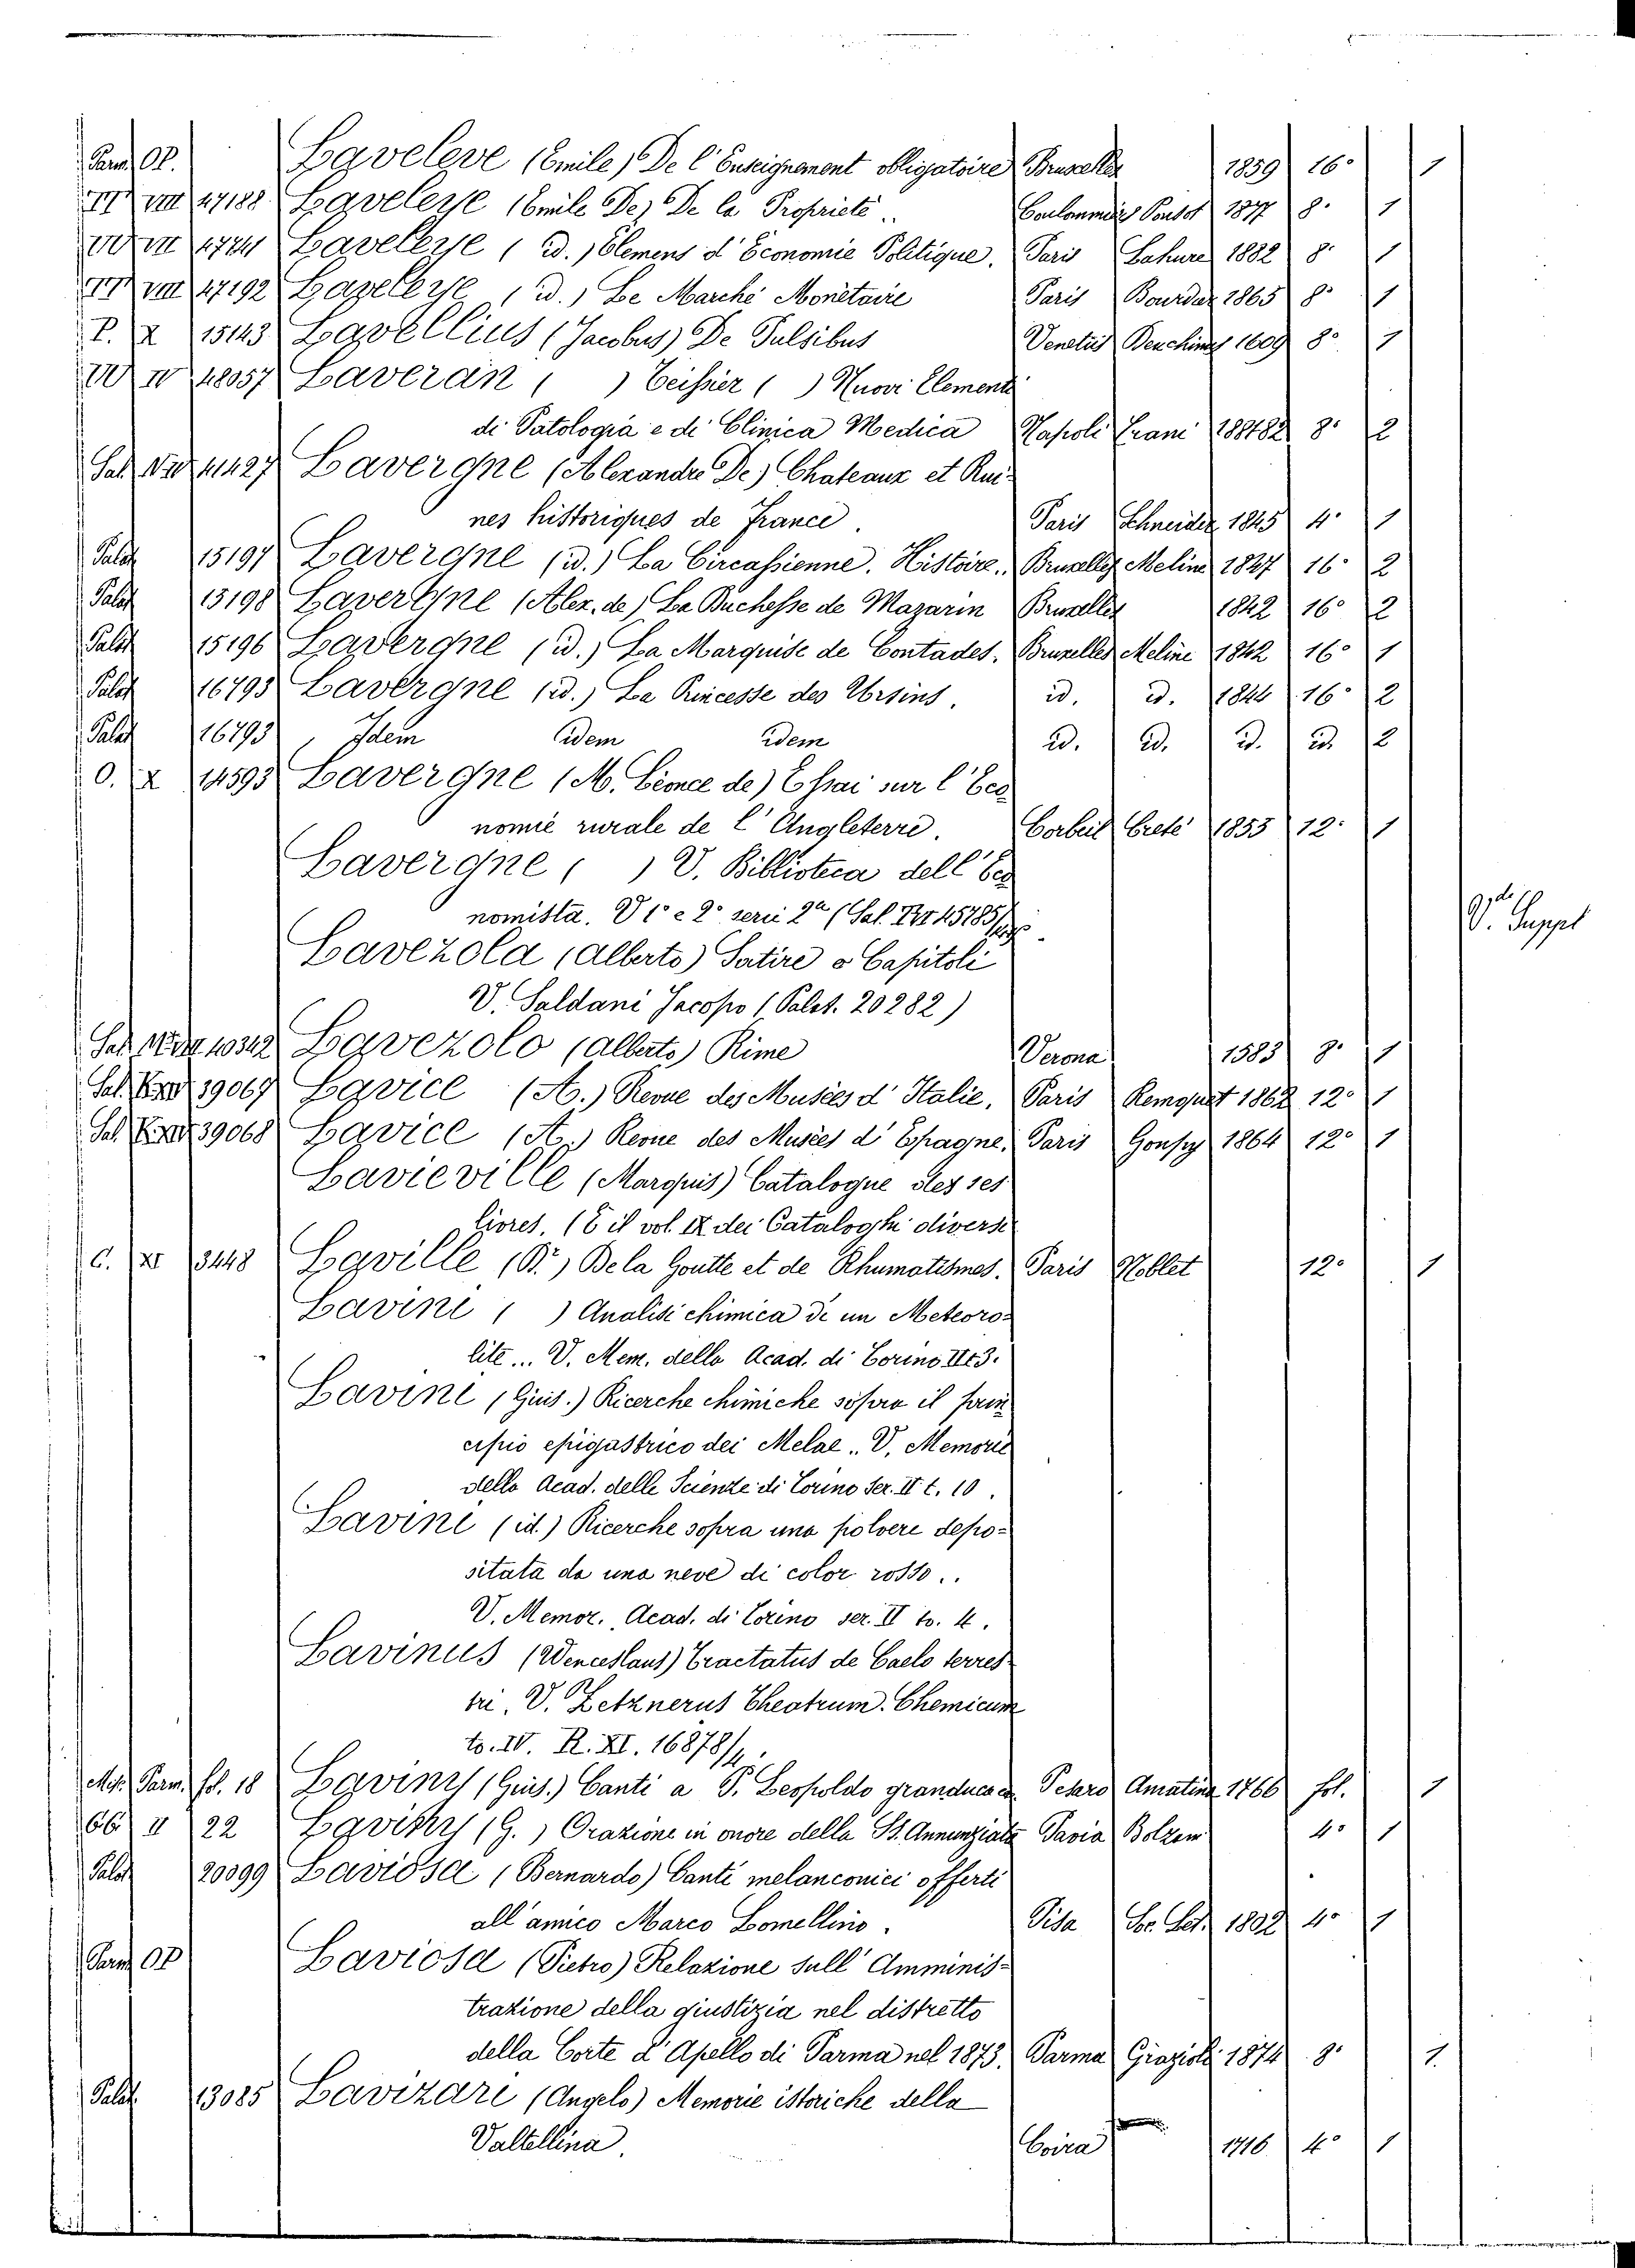 Parm. Op. Laveleye (Emile) De l'Enseignement obligatoire Bruxelles 1859 16° 1
VIII 47188 Laveleye (Emile De) De la Proprieté .. Coulommiers 1877 8° 1
Laveleye (id.) Elemens d'Economie Politique. Paris Lahure 1882 8° 1
VIII 47192 Laveleye (id.) Le Marché Monétaire Paris 1865 8° 1
P. X 15143 Lavellius (Jacobus) De Pulsibus Venetiis 1609 8° 1
IV 48057 Laveran ( ) Teissier ( ) Nuovi Elementi
di Patologia e di Clinica Medica Napoli 8° 2
Sal. 41427 Lavergne (Alexandre De) Chateaux et Rui-
nes historiques de France. Paris Schneider 1845 4° 1
Palat. 15197 Lavergne (id.) La Circassienne. Histoire.. Bruxelles Meline 1847 16° 2
Palat. 15198 Lavergne (Alex. de) La Duchesse de Mazarin Bruxelles 1842 16° 2
Palat. 15196 Lavergne (id.) La Marquise de Contades. Bruxelles Meline 1842 16° 1
Palat. 16793 Lavergne (id.) La Princesse des Ursins. id. id. 1844 16° 2
Palat. 16793 Idem idem idem id. id. id. id. 2
O. X 14593 Lavergne (M. Léonce de) Essai sur l'Eco
nomie rurale de l'Angleterre. Corbeil Creté 1853 12° 1
Lavergne ( ) V. Biblioteca dell'Eco
nomista. V 1° e 2° serie 2ª (Sal. 45785
V. Suppl
Lavezola (Alberto) Satire o Capitoli
V. Saldani Jacopo (Palat. 20282)
Sal. 40342 Lavezolo (Alberto) Rime Verona 1583 8° 1
Sal. 39067 Lavice (A.) Revue des Musées d'Italie. Paris Remquet 1862 12° 1
Sal. 39068 Lavice (A.) Revue des Musées d'Espagne. Paris 1864 12° 1
Lavieville (Marquis) Catalogue des ses
livres. (E il vol. IX dei Cataloghi diversi
C. XI 13448 Laville (Dr.) De la Goutte et de Rhumatismes. Paris Noblet 12° 1
Lavini ( ) Analisi chimica di un Meteoro-
lite... V. Mem. della Acad. di Torino II t 3.
Lavini (Gius.) Ricerche chimiche sopra il prin
cipio epigastrico dei Melae.. V. Memorie
della Acad. delle Scienze di Torino Ser. II t. 10.
Lavini (id.) Ricerche sopra una polvere depo-
sitata da una neve di color rosso..
V. Memor. Acad. di Torino ser. II to. 4.
Lavinus (Wenceslaus) Tractatus de Caelo terres-
tri. V. Zetznerus Theatrum Chemicum
to. IV. R. XI. 16878/4.
Mss. Parm. fol. 18 Laviny (Gius.) Canti a P. Leopoldo granduca di Pesaro Amatina 1766 fol. 1
66 II 22 Laviny (G.) Orazione in onore della SS. Annunziata Pavia Bolzani 4° 1
Palat. 20099 Laviosa (Bernardo) Canti melanconici offerti
all'amico Marco Lomellino. Pisa Soc. Let. 1802 4° 1
Parm. Op. Laviosa (Pietro) Relazione sull'Amminis-
trazione della giustizia nel distretto
della Corte d'Apello di Parma nel 1873. Parma Grazioli 1874 8° 1.
Palat. 13085 Lavizari (Angelo) Memorie istoriche della
Valtellina. Coira 1716 4° 1